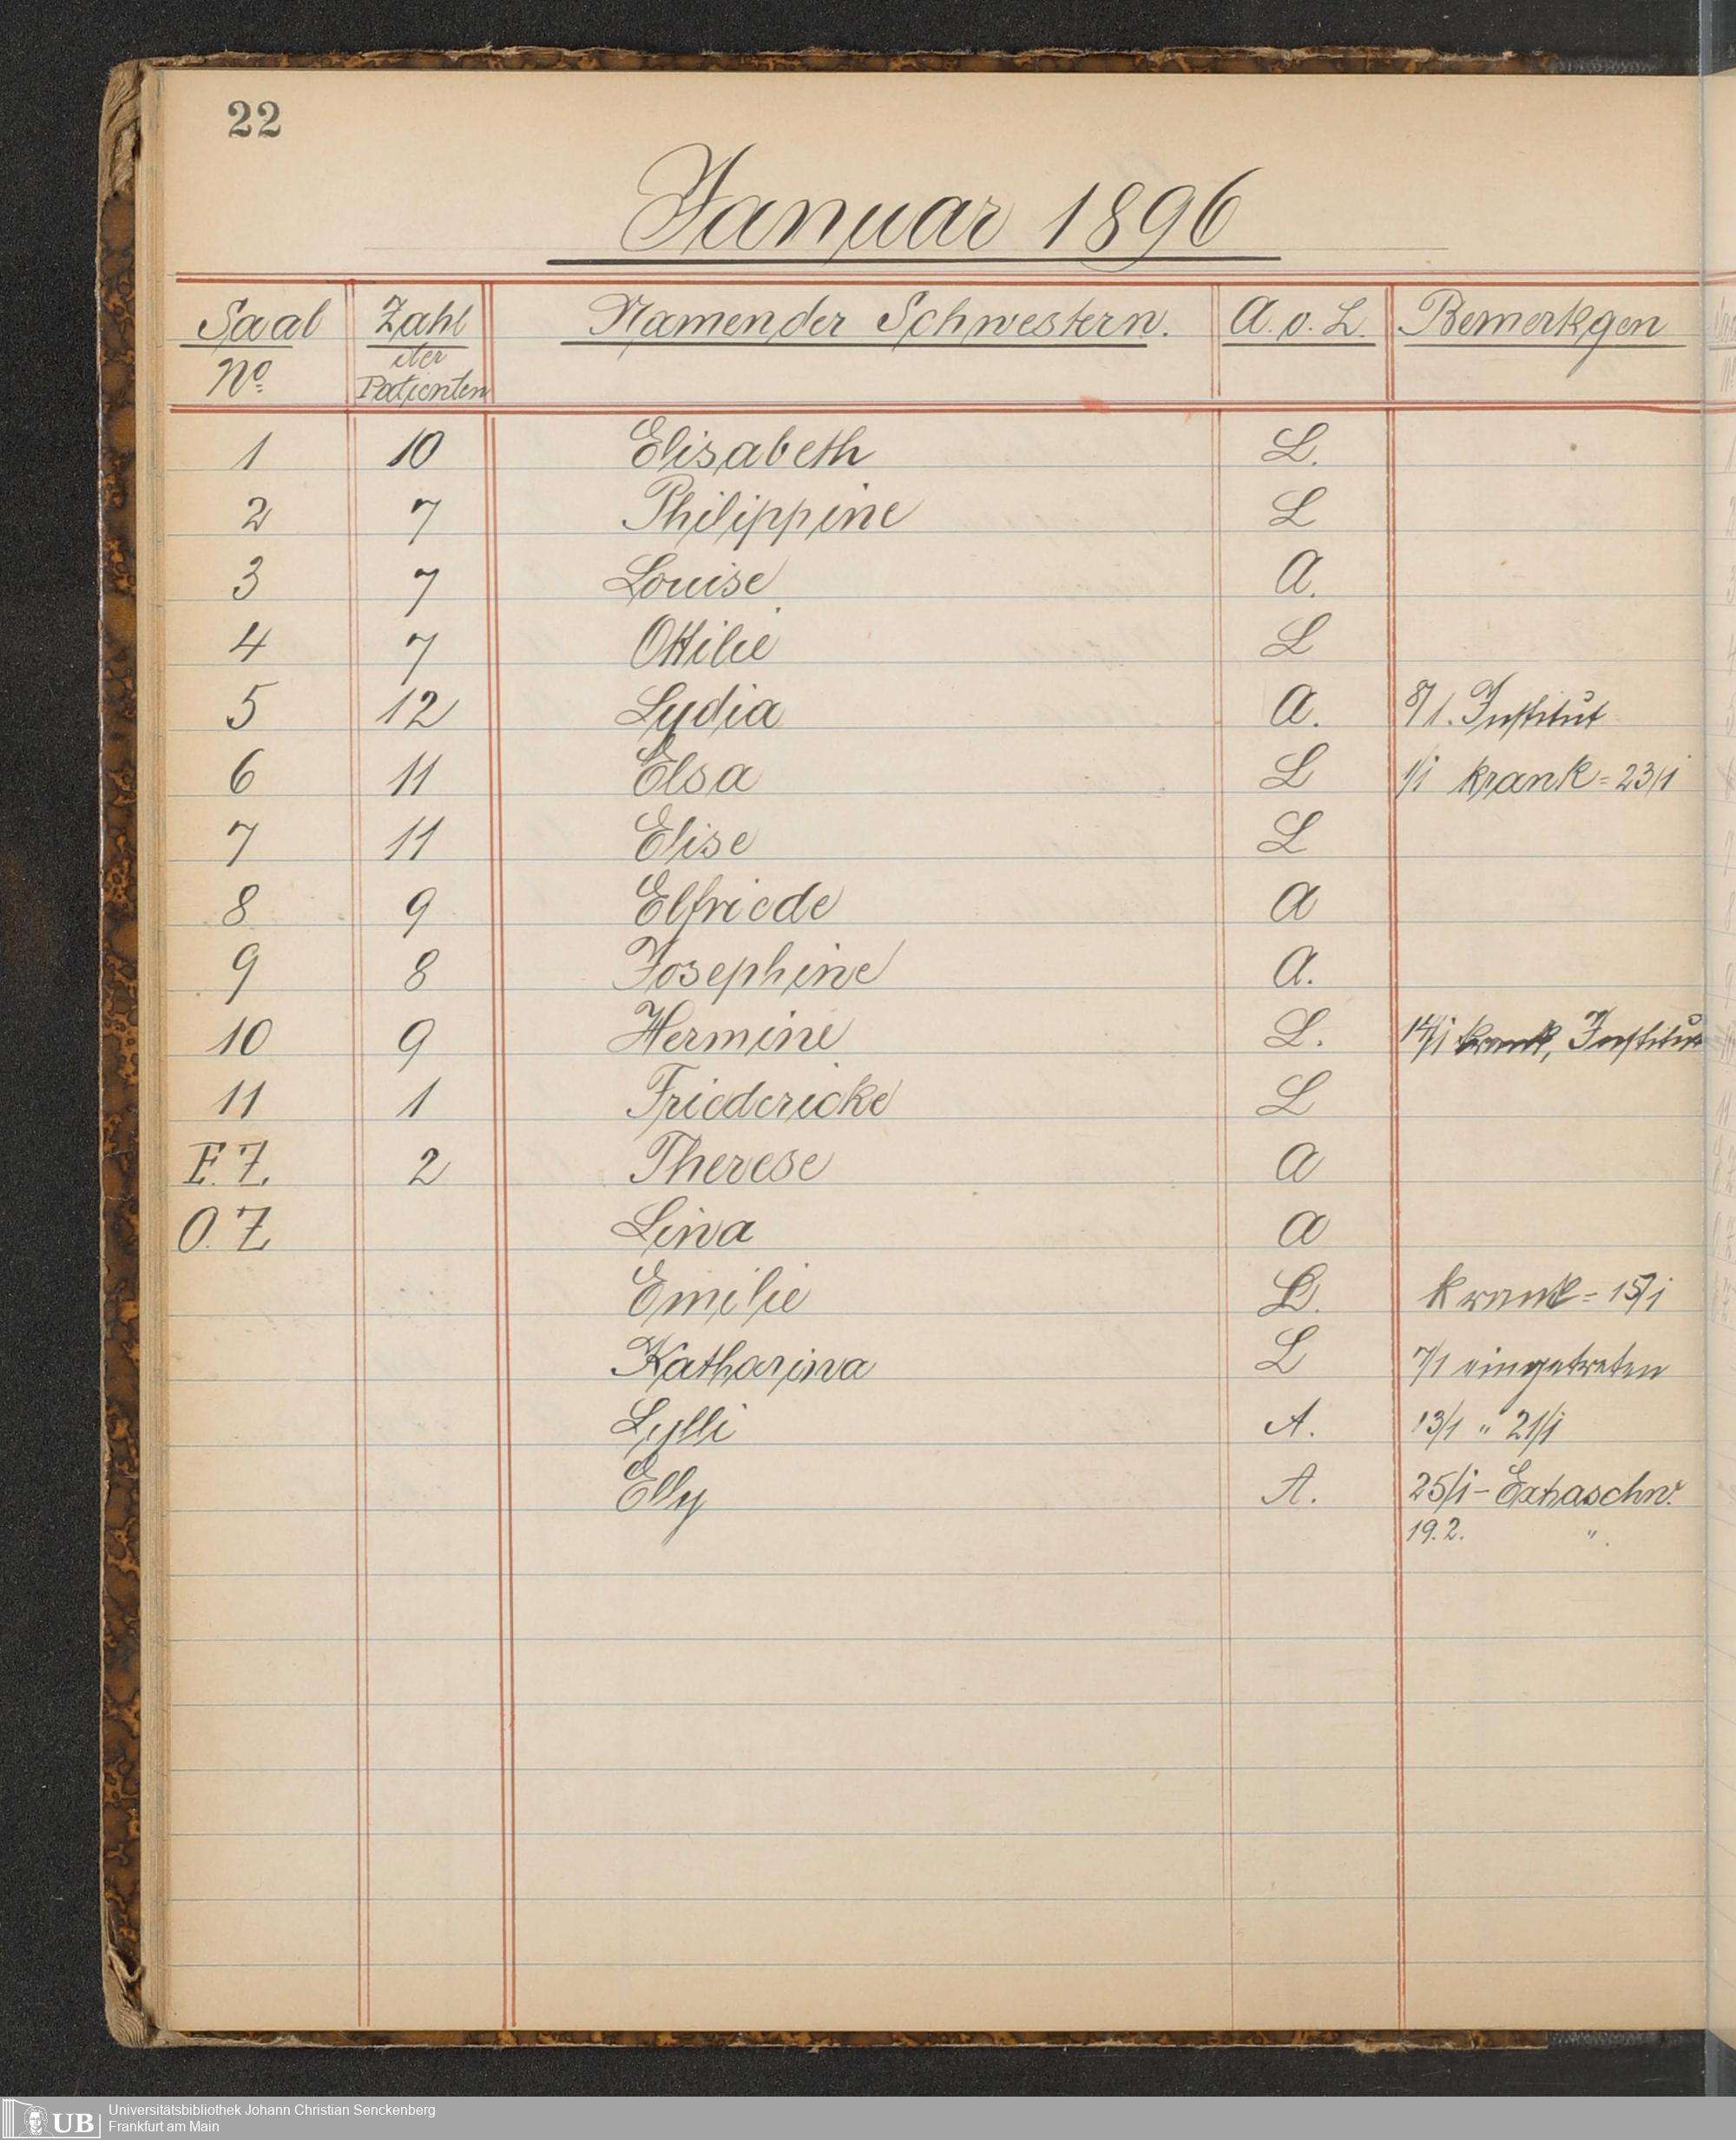 22
Januar 1896
Saal No Zahl der Patienten Namen der Schwestern. A. o. L. Bemerkgen
1 10 Elisabeth L.
2 7 Philippine L
3 7 Louise A.
4 7 Ottilie L
5 12 Lydia A. 8/1. Institut
6 11 Elsa L 1/1 krank = 23/1
7 11 Elise L
8 9 Elfriede A
9 8 Josephine A.
10 9 Hermine L. 14/1 krank, Institut
11 1 Friedericke L
F. Z. 2 Therese A
O. Z Lina A
Emilie L. krank = 15/1
Katharina L 7/1 eingetreten
Lylli A. 13/1 " 21/1
Elly A. 25/1 - Extraschw.
19.2. "
UB Universitätsbibliothek Johann Christian Senckenberg
Frankfurt am Main